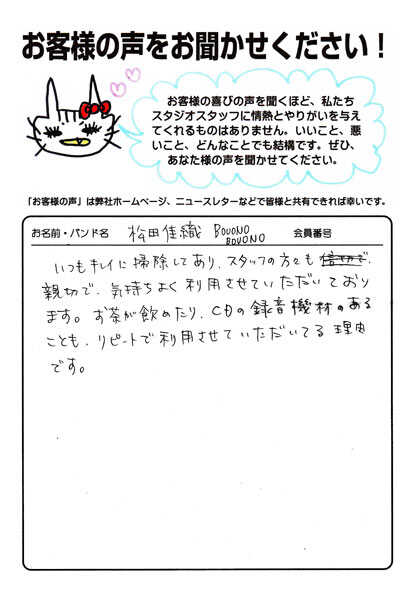 お客様の声をお聞かせください！
お客様の喜びの声を聞くほど、私たち
スタジオスタッフに情熱とやりがいを与え
てくれるものはありません。いいこと、悪
いこと、どんなことでも結構です。ぜひ、
あなた様の声を聞かせてください。
「お客様の声」は弊社ホームページ、ニュースレターなどで皆様と共有できれば幸いです。
お名前・バンド名 松田佳織 BOUONO
BOUONO 会員番号
いつもキレイに掃除してあり、スタッフの方々も
親切で、気持ちよく利用させていただいており
ます。お茶が飲めたり、CDの録音機材のある
ことも、リピートで利用させていただいてる理由
です。